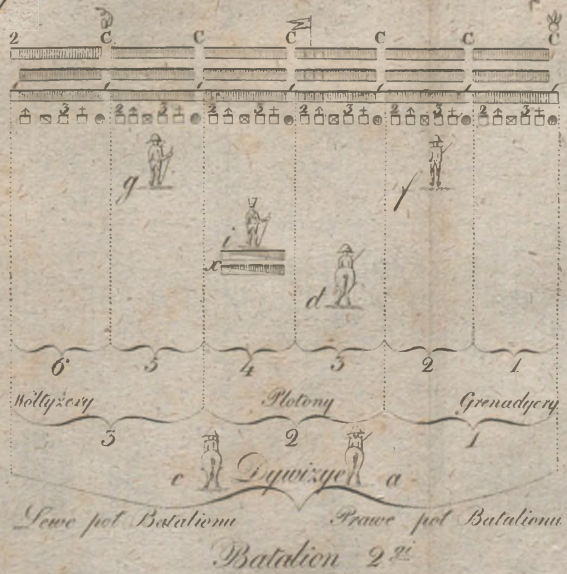 2 C C C C C C
3 2 3 2 3 2 3 2 3 2 3
g f
i
x
d
6 5 4 3 2 1
Wóltyżery Plotony Grenadyery
3 2 1
c Dywizye a
Lewe pół Batalionu Prawe pół Batalionu
Batalion 2gi